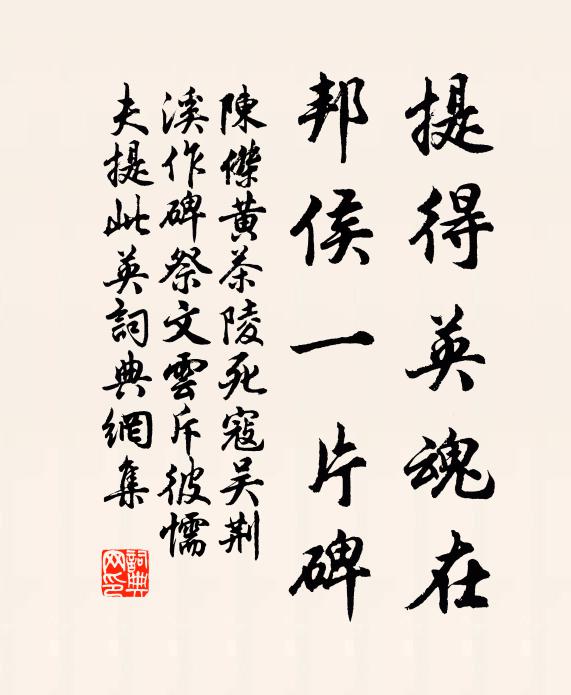 提得英魂在
邦侯一片碑
陳傑黃茶陵死寇吴荆
溪作碑祭文雲斥彼懦
夫提此英詞典網集
詞典网印